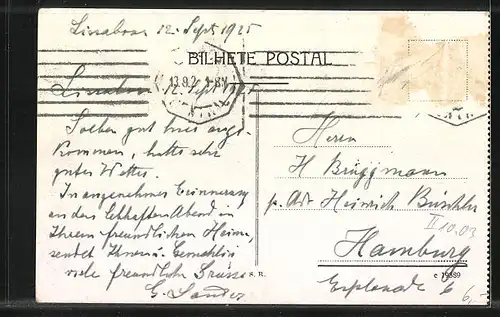 Lissabon 12. Sept 1925
BILHETE POSTAL
13.9.2
Lissabon 12. Sept 1925
Soeben gut hier ange-
kommen, hatte sehr
gutes Wetter.
In angenehmer Erinnerung
an den lebhaften Abend in
Ihrem freundlichen Heim,
sendet Ihnen u. Gemahlin
viele freundliche Grüsse
G. Sander
S. R.
Herrn
H Brüggmann
p. Adr Heinrich
II 10.03
Hamburg
c 19389
Esplanade 6
6,-